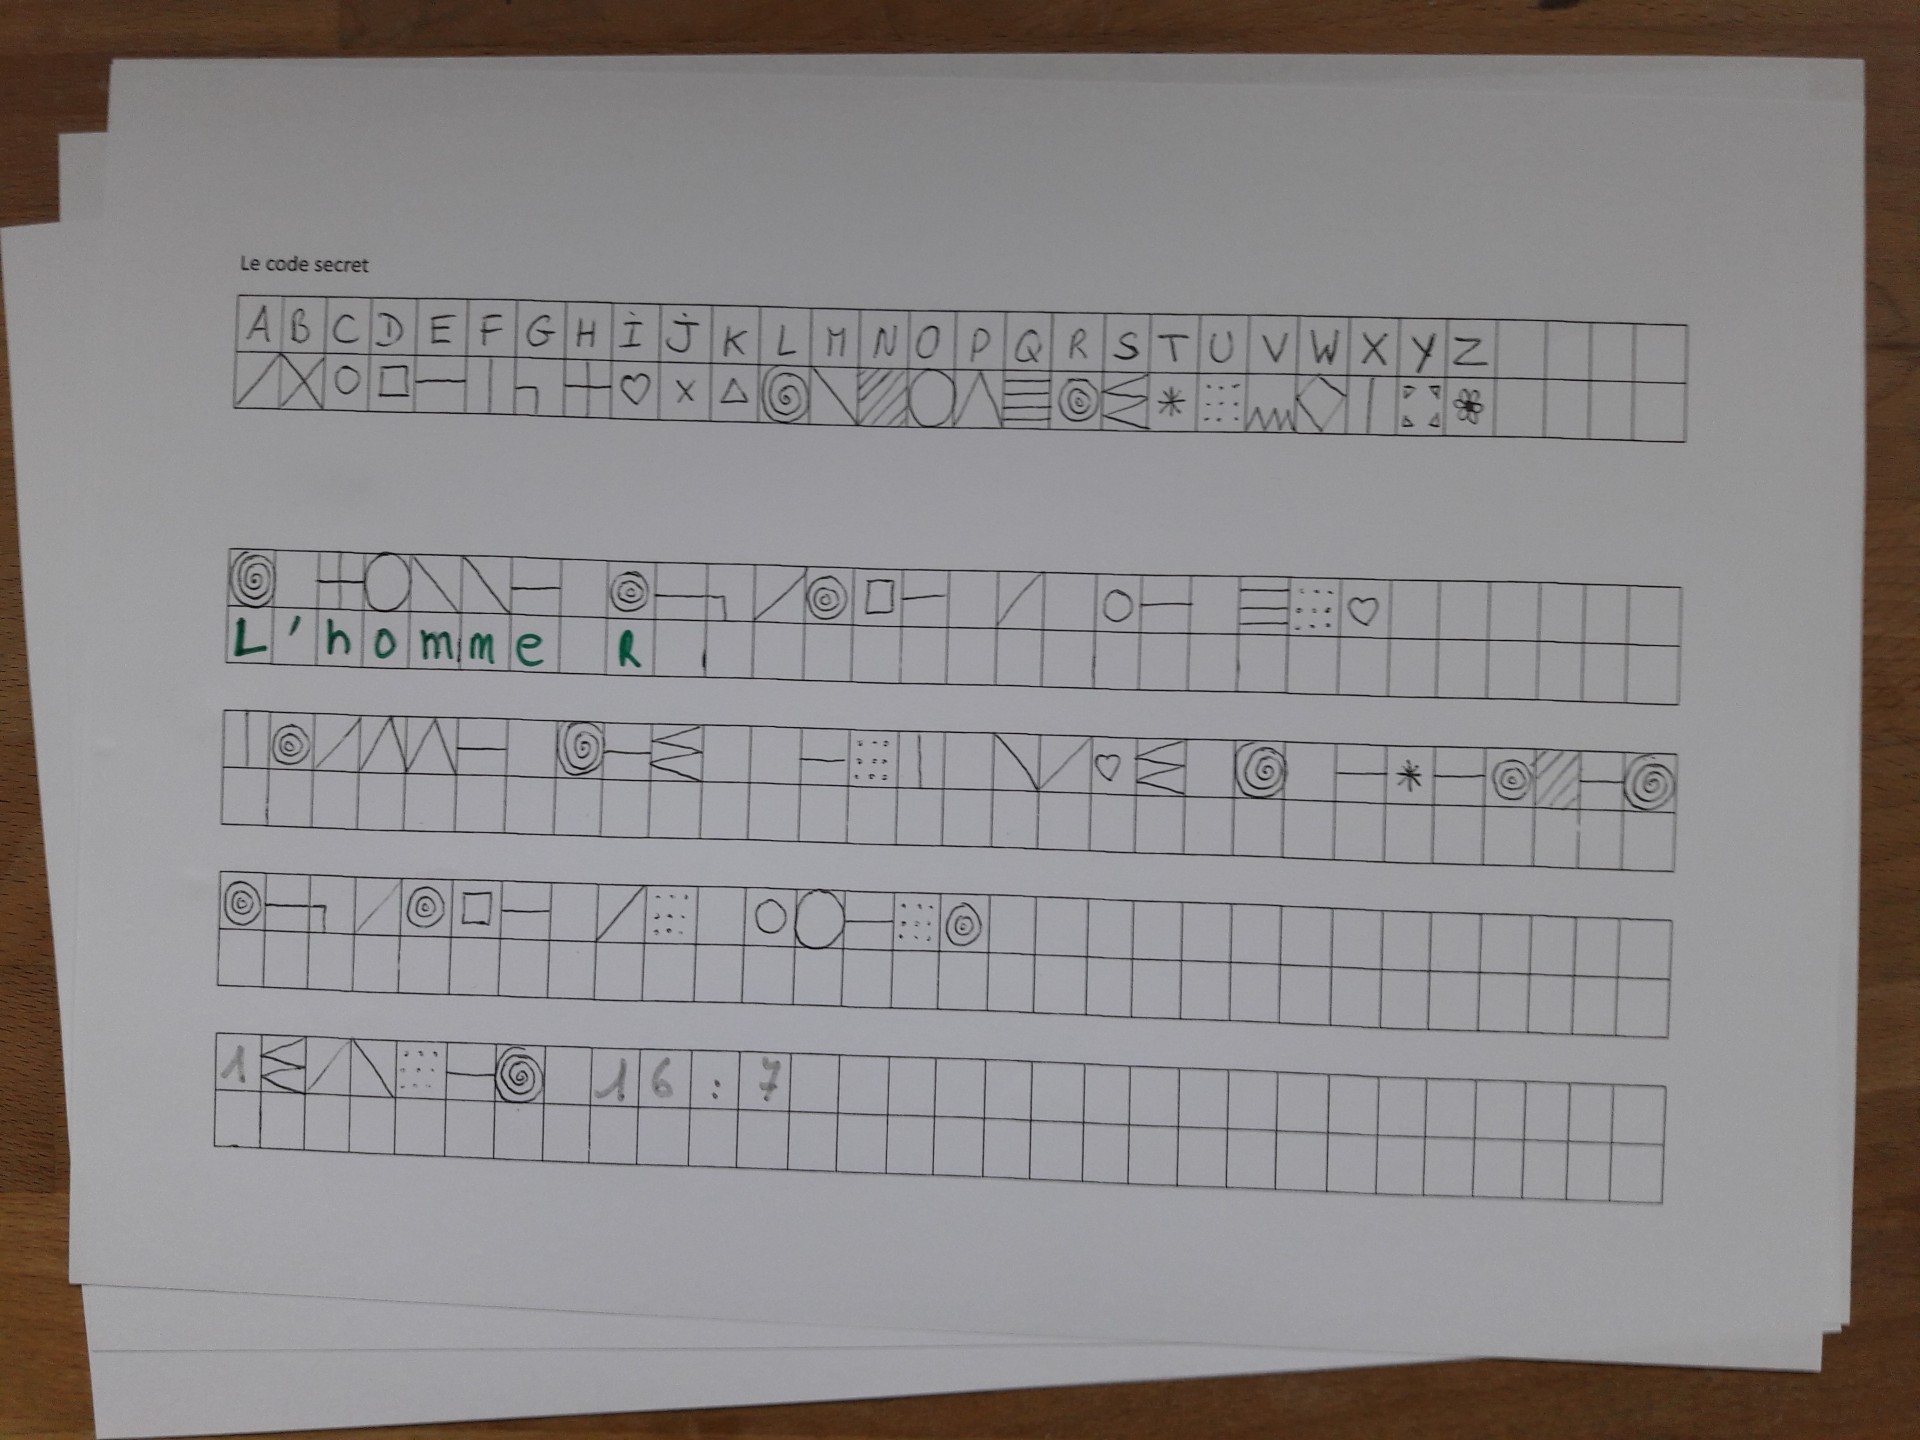 Le code secret
A B C D E F G H I J K L M N O P Q R S T U V W X Y Z
L'homme R
1 16 : 7